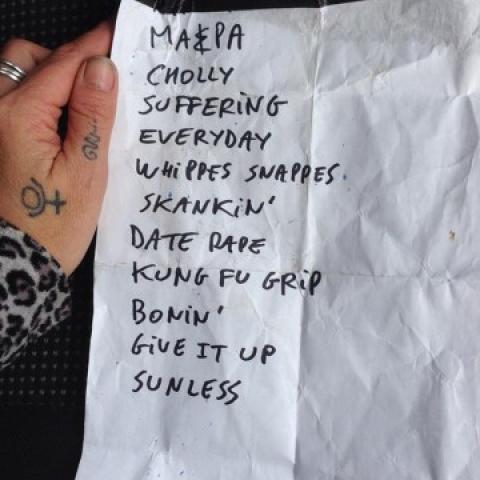 MA&PA
CHOLLY
SUFFERiNG
EVERYDAY
WHiPPES SNAPPES
SKANKiN'
DATE RAPE
KUNG FU GRiP
BONiN'
GiVE IT UP
SUNLESS